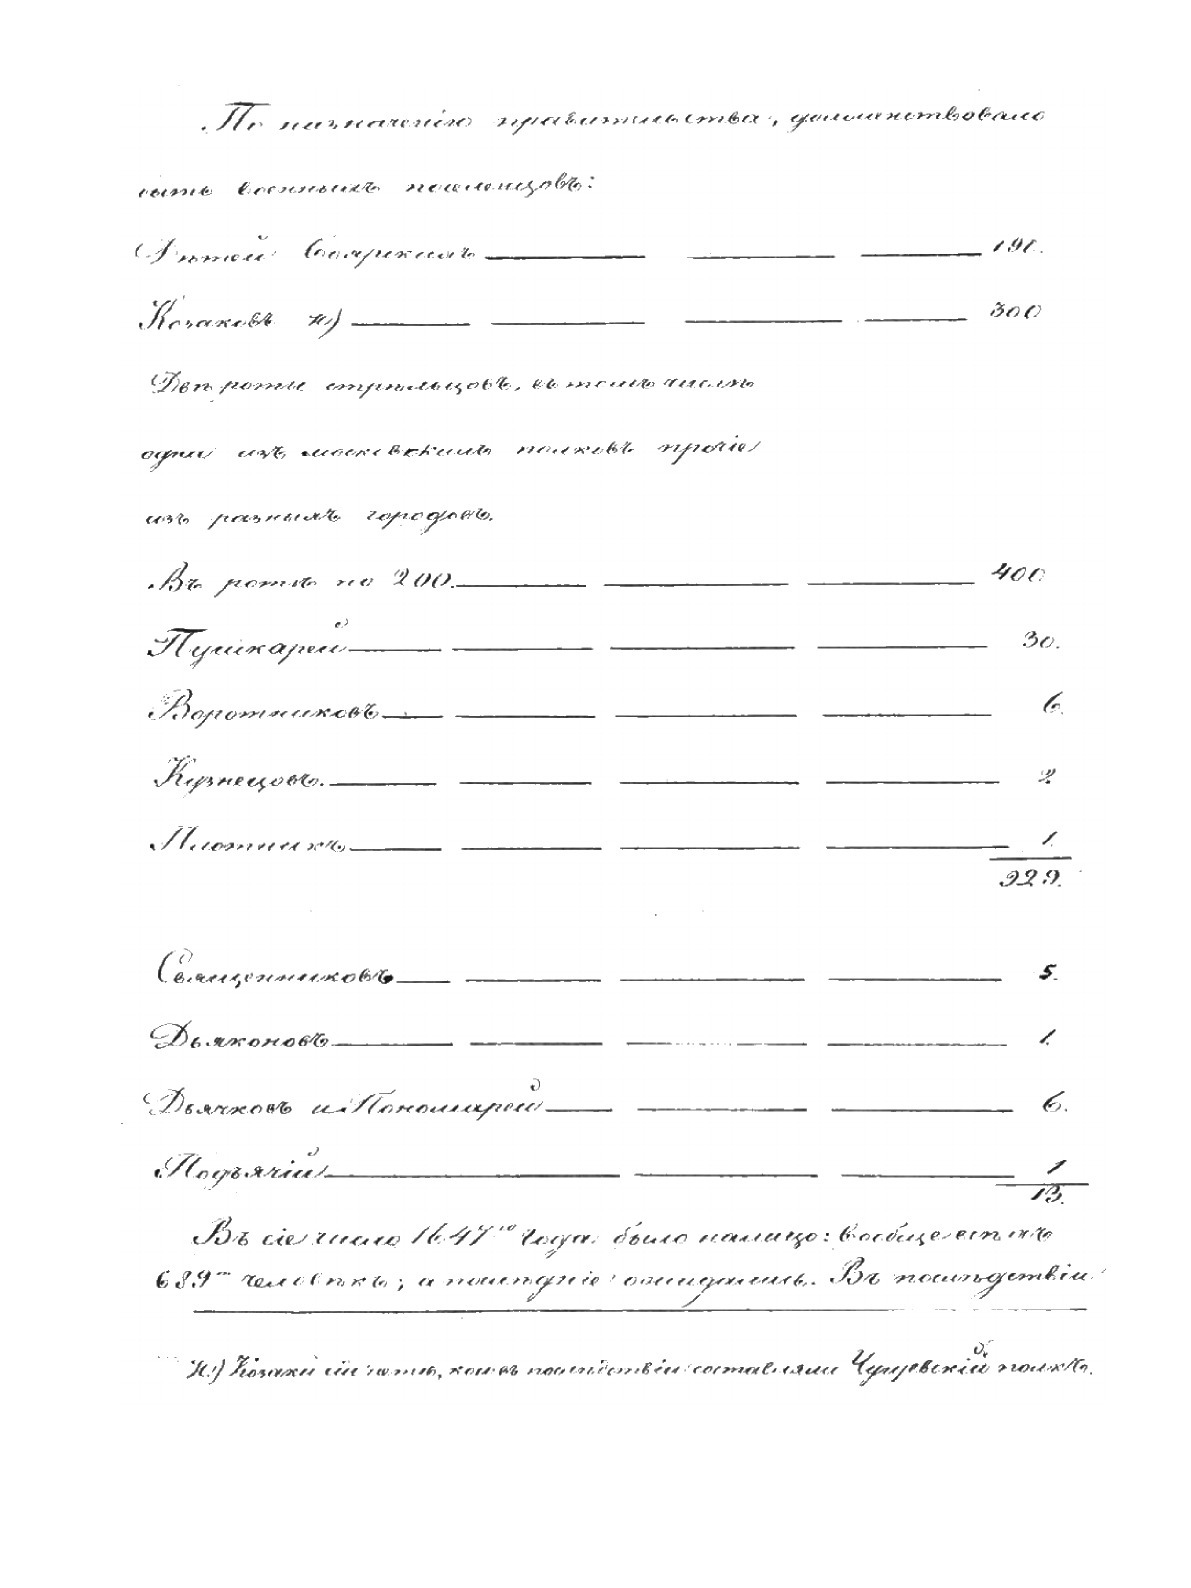 По назначенію правительства, долженствовало
быть военныхъ поселенцовъ:
Дѣтей боярскихъ 190.
Козаковъ н) 300
Двѣ роты стрѣльцовъ, въ томъ числѣ
одни изъ московскихъ полковъ прочіе
изъ разныхъ городовъ.
Въ ротѣ по 200. 400
Пушкарей 30.
Воротниковъ 6.
Кузнецовъ. 2
Плотникъ 1.
929.
Священниковъ 5.
Дьяконовъ 1.
Дьячковъ и Пономарей 6.
Подъячій 1
13.
Въ сіе число 1647го года было налицо: вообще всѣхъ
689ть человѣкъ; а послѣдніе ожидались. Въ послѣдствіи
н) Козаки сіи тѣ, кои въ послѣдствіи составляли Чугуевскій полкъ.